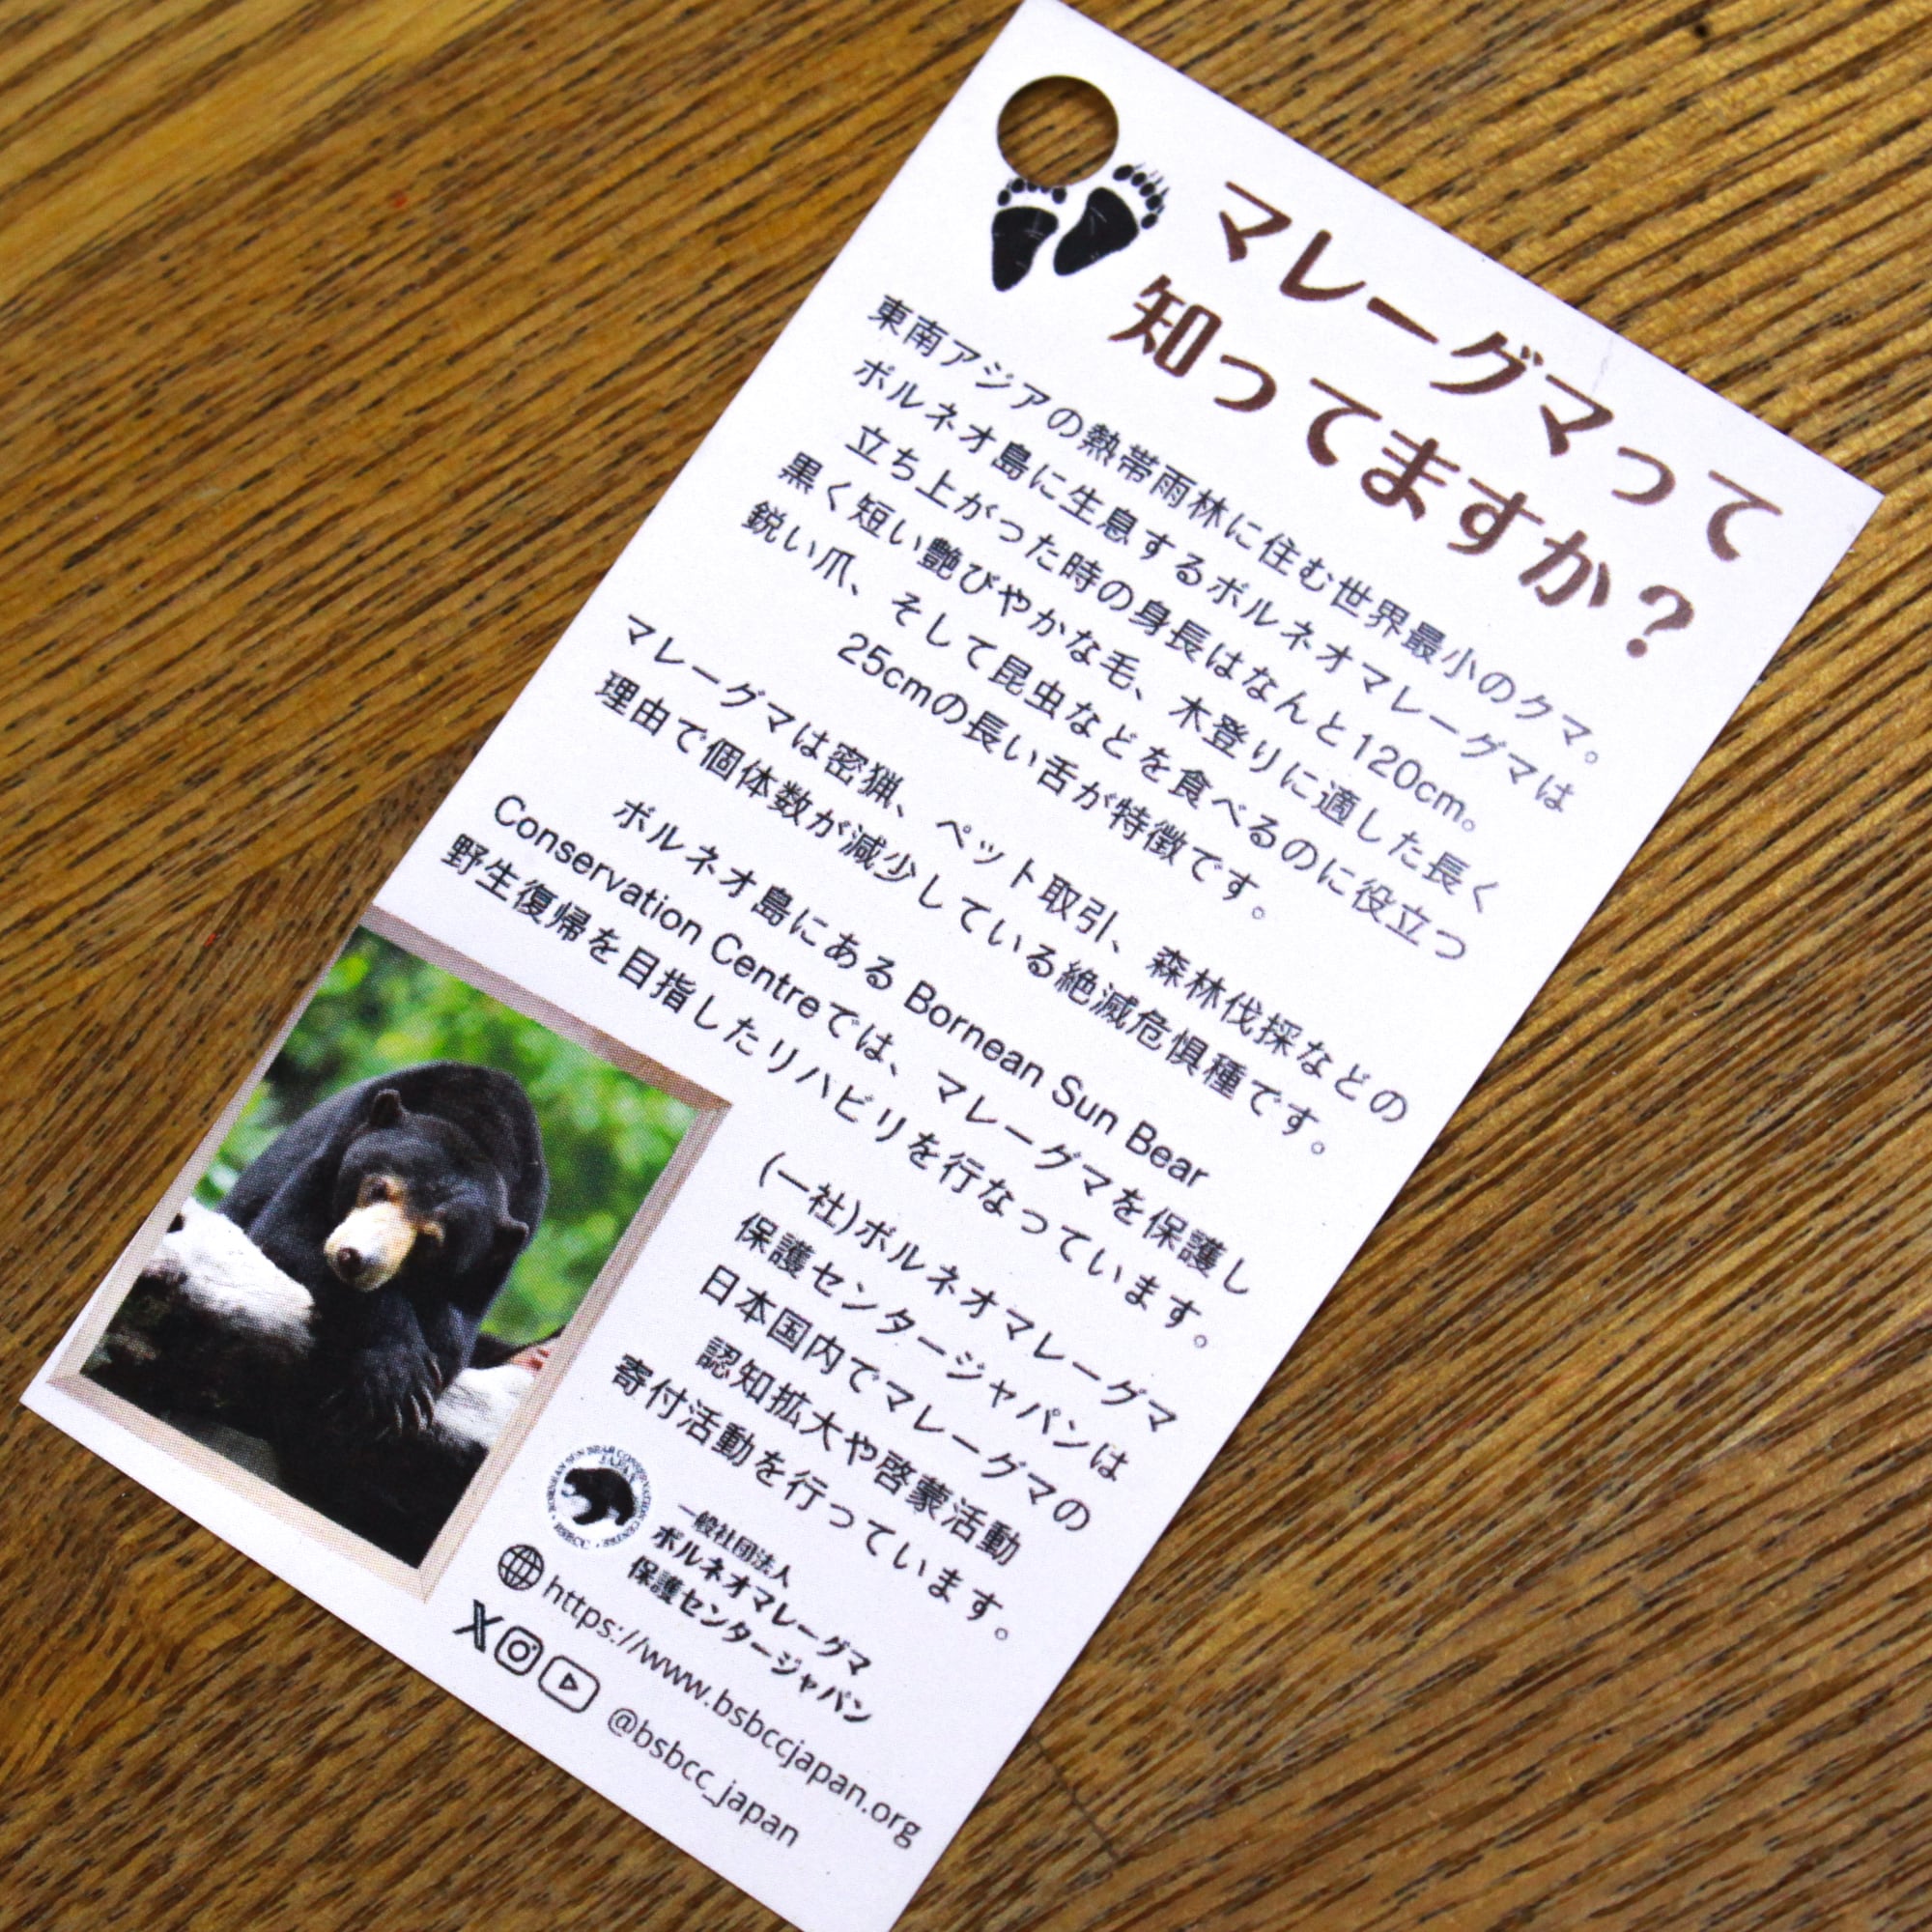 マレーグマって
知ってますか?
東南アジアの熱帯雨林に住む世界最小のクマ。
ボルネオ島に生息するボルネオマレーグマは
立ち上がった時の身長はなんと120cm。
黒く短い艶びやかな毛、木登りに適した長く
鋭い爪、そして昆虫などを食べるのに役立つ
25cmの長い舌が特徴です。
マレーグマは密猟、ペット取引、森林伐採などの
理由で個体数が減少している絶滅危惧種です。
ボルネオ島にある Bornean Sun Bear
Conservation Centreでは、マレーグマを保護し
野生復帰を目指したリハビリを行なっています。
(一社)ボルネオマレーグマ
保護センタージャパンは
日本国内でマレーグマの
認知拡大や啓蒙活動
寄付活動を行っています。
BORNEAN SUN BEAR CONSERVATION CENTRE
JAPAN
BSBCC
一般社団法人
ボルネオマレーグマ
保護センタージャパン
https://www.bsbccjapan.org
@bsbcc_japan